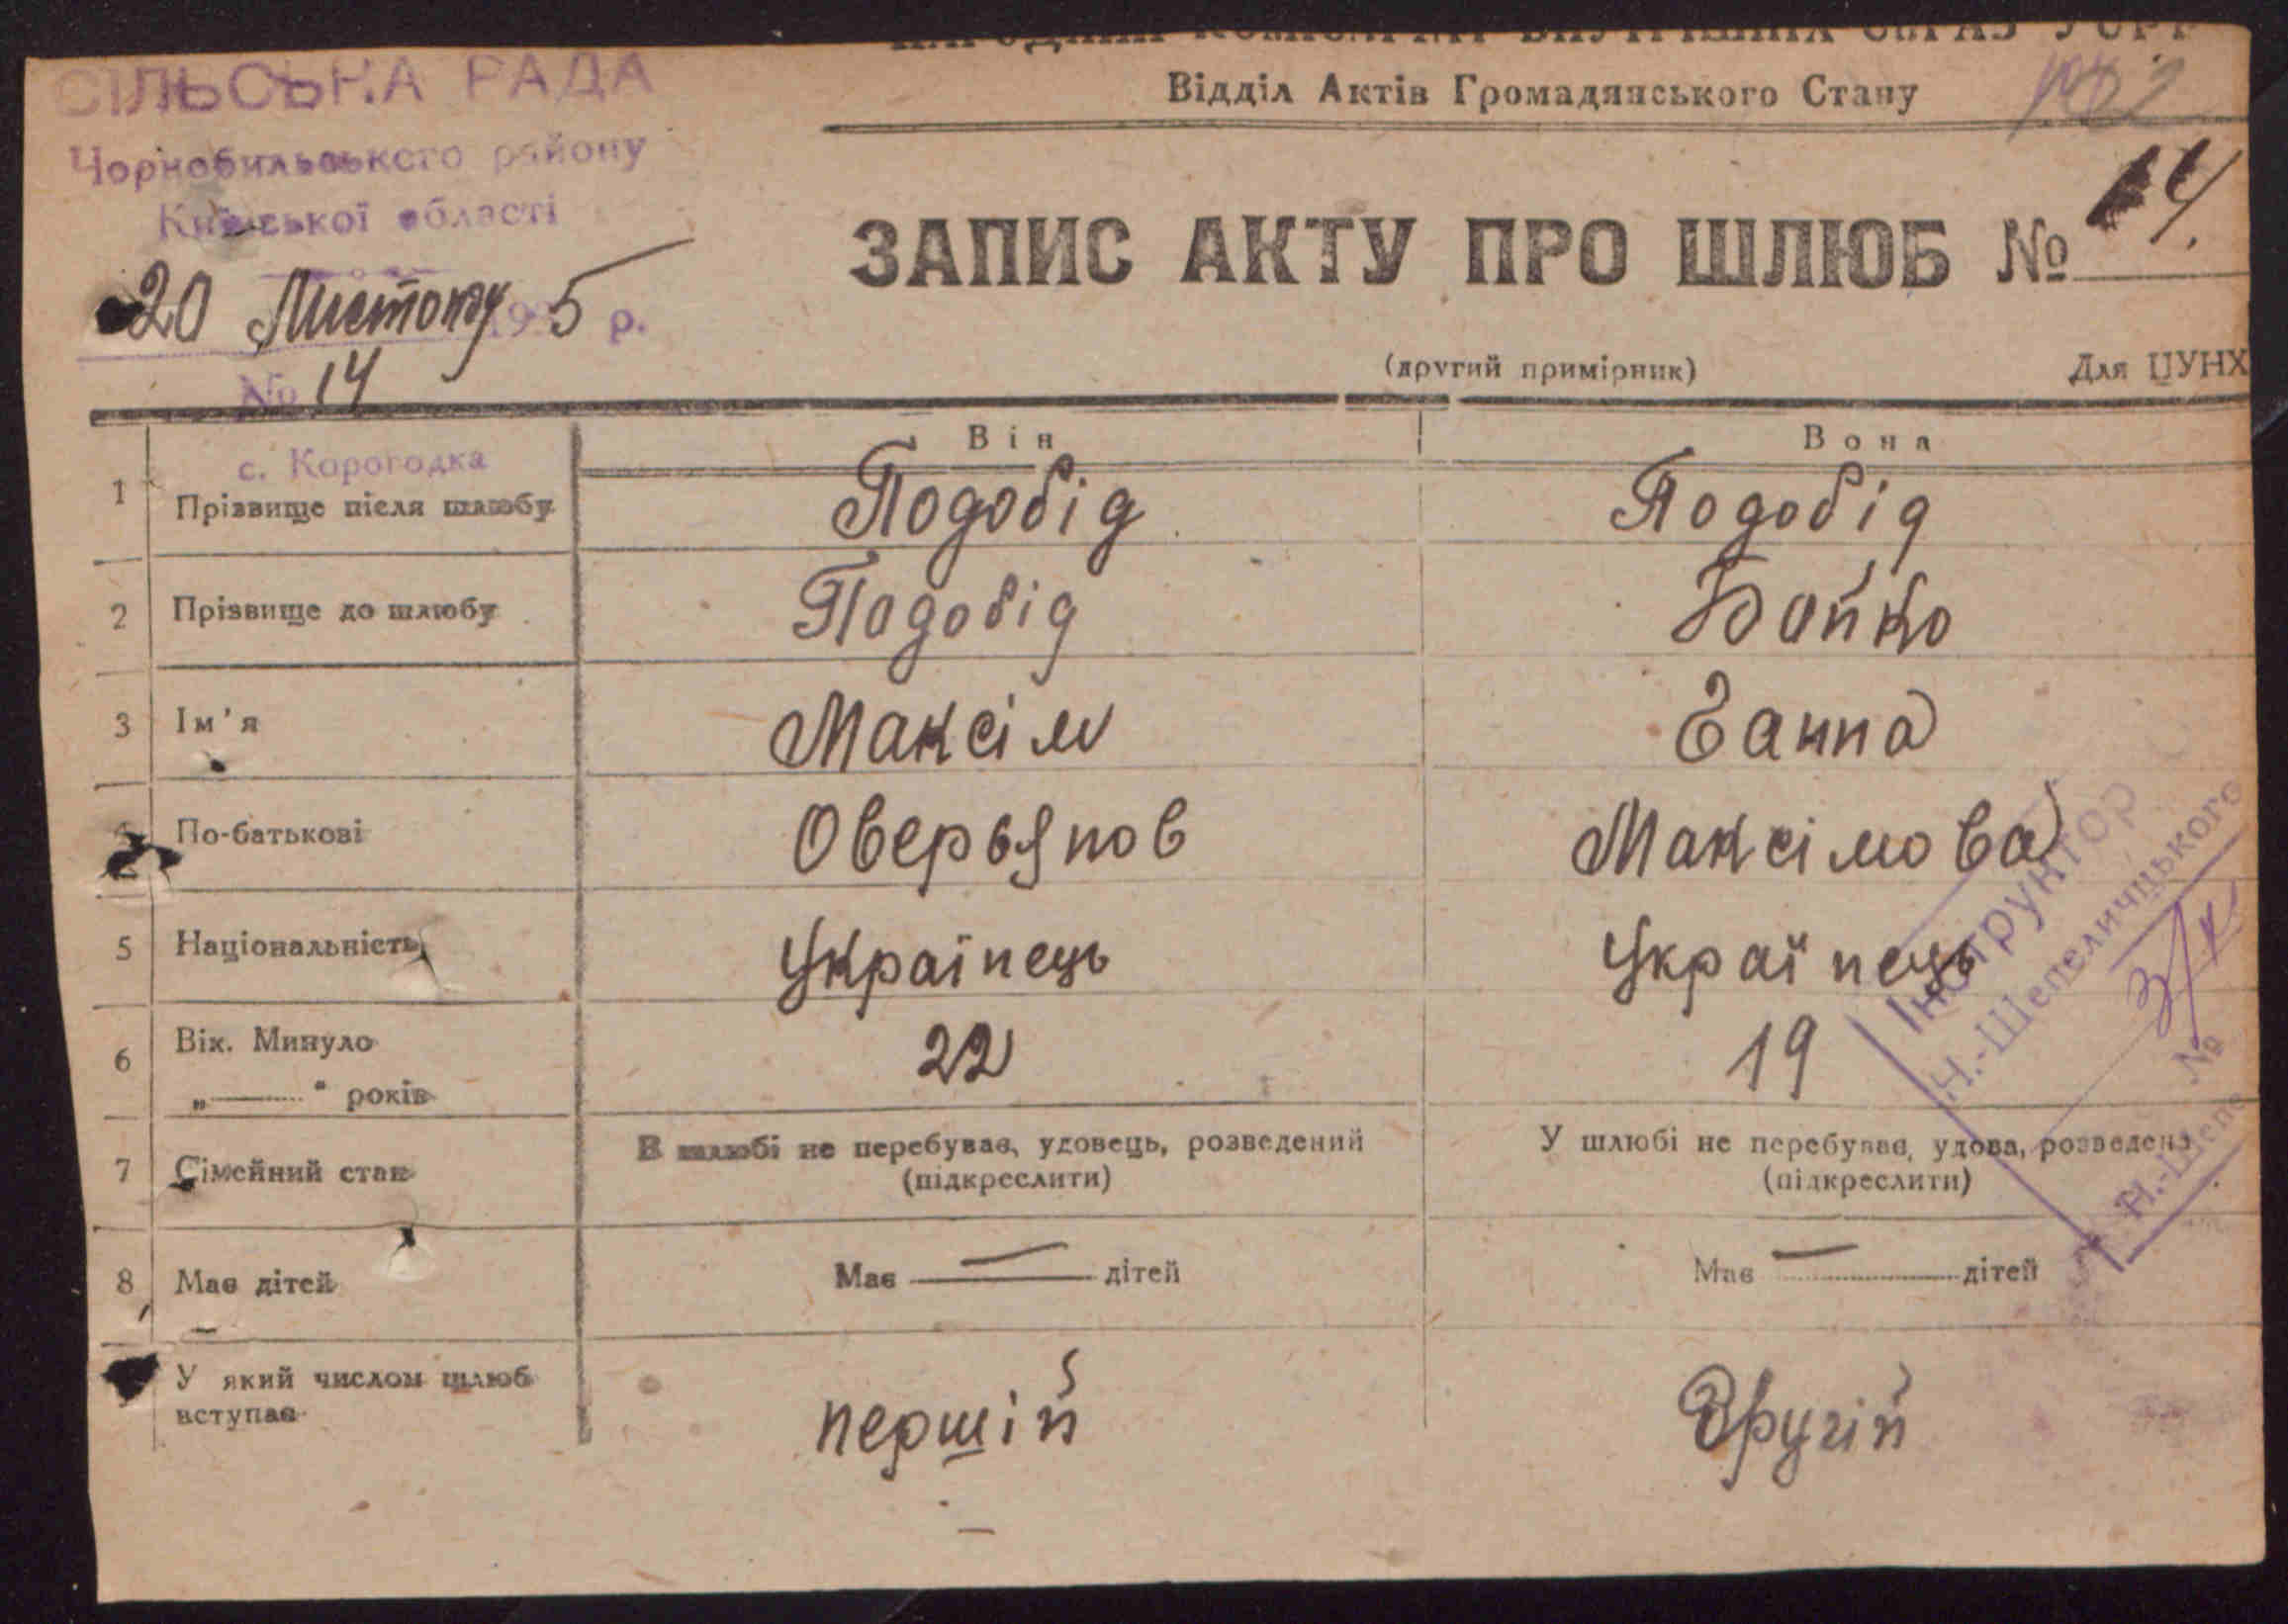 СІЛЬСЬКА РАДА
Чорнобильського району
Київської області
20 Листопаду 1935 р.
№ 14
НАРОДНИЙ КОМІСАРІАТ ВНУТРІШНІХ СПРАВ УСРР
Відділ Актів Громадянського Стану
ЗАПИС АКТУ ПРО ШЛЮБ № 14.
(другий примірник) Для ЦУНХ
Він Вона
с. Корогодка
1 Прізвище після шлюбу Подобід Подобід
2 Прізвище до шлюбу Подобід Бойко
3 Ім'я Максім Ганна
По-батькові Оверьянов Максімова
5 Національність Українець Українець
6 Вік. Минуло 22 19
„ “ років
7 Сімейний стан В шлюбі не перебуває, удовець, розведений У шлюбі не перебуває, удова, розведена
(підкреслити) (підкреслити)
8 Має дітей Має — дітей Має — дітей
У який числом шлюб першій Другій
вступає
Інструктор
Н.-Шепеличцького
№
Н.-Шепе